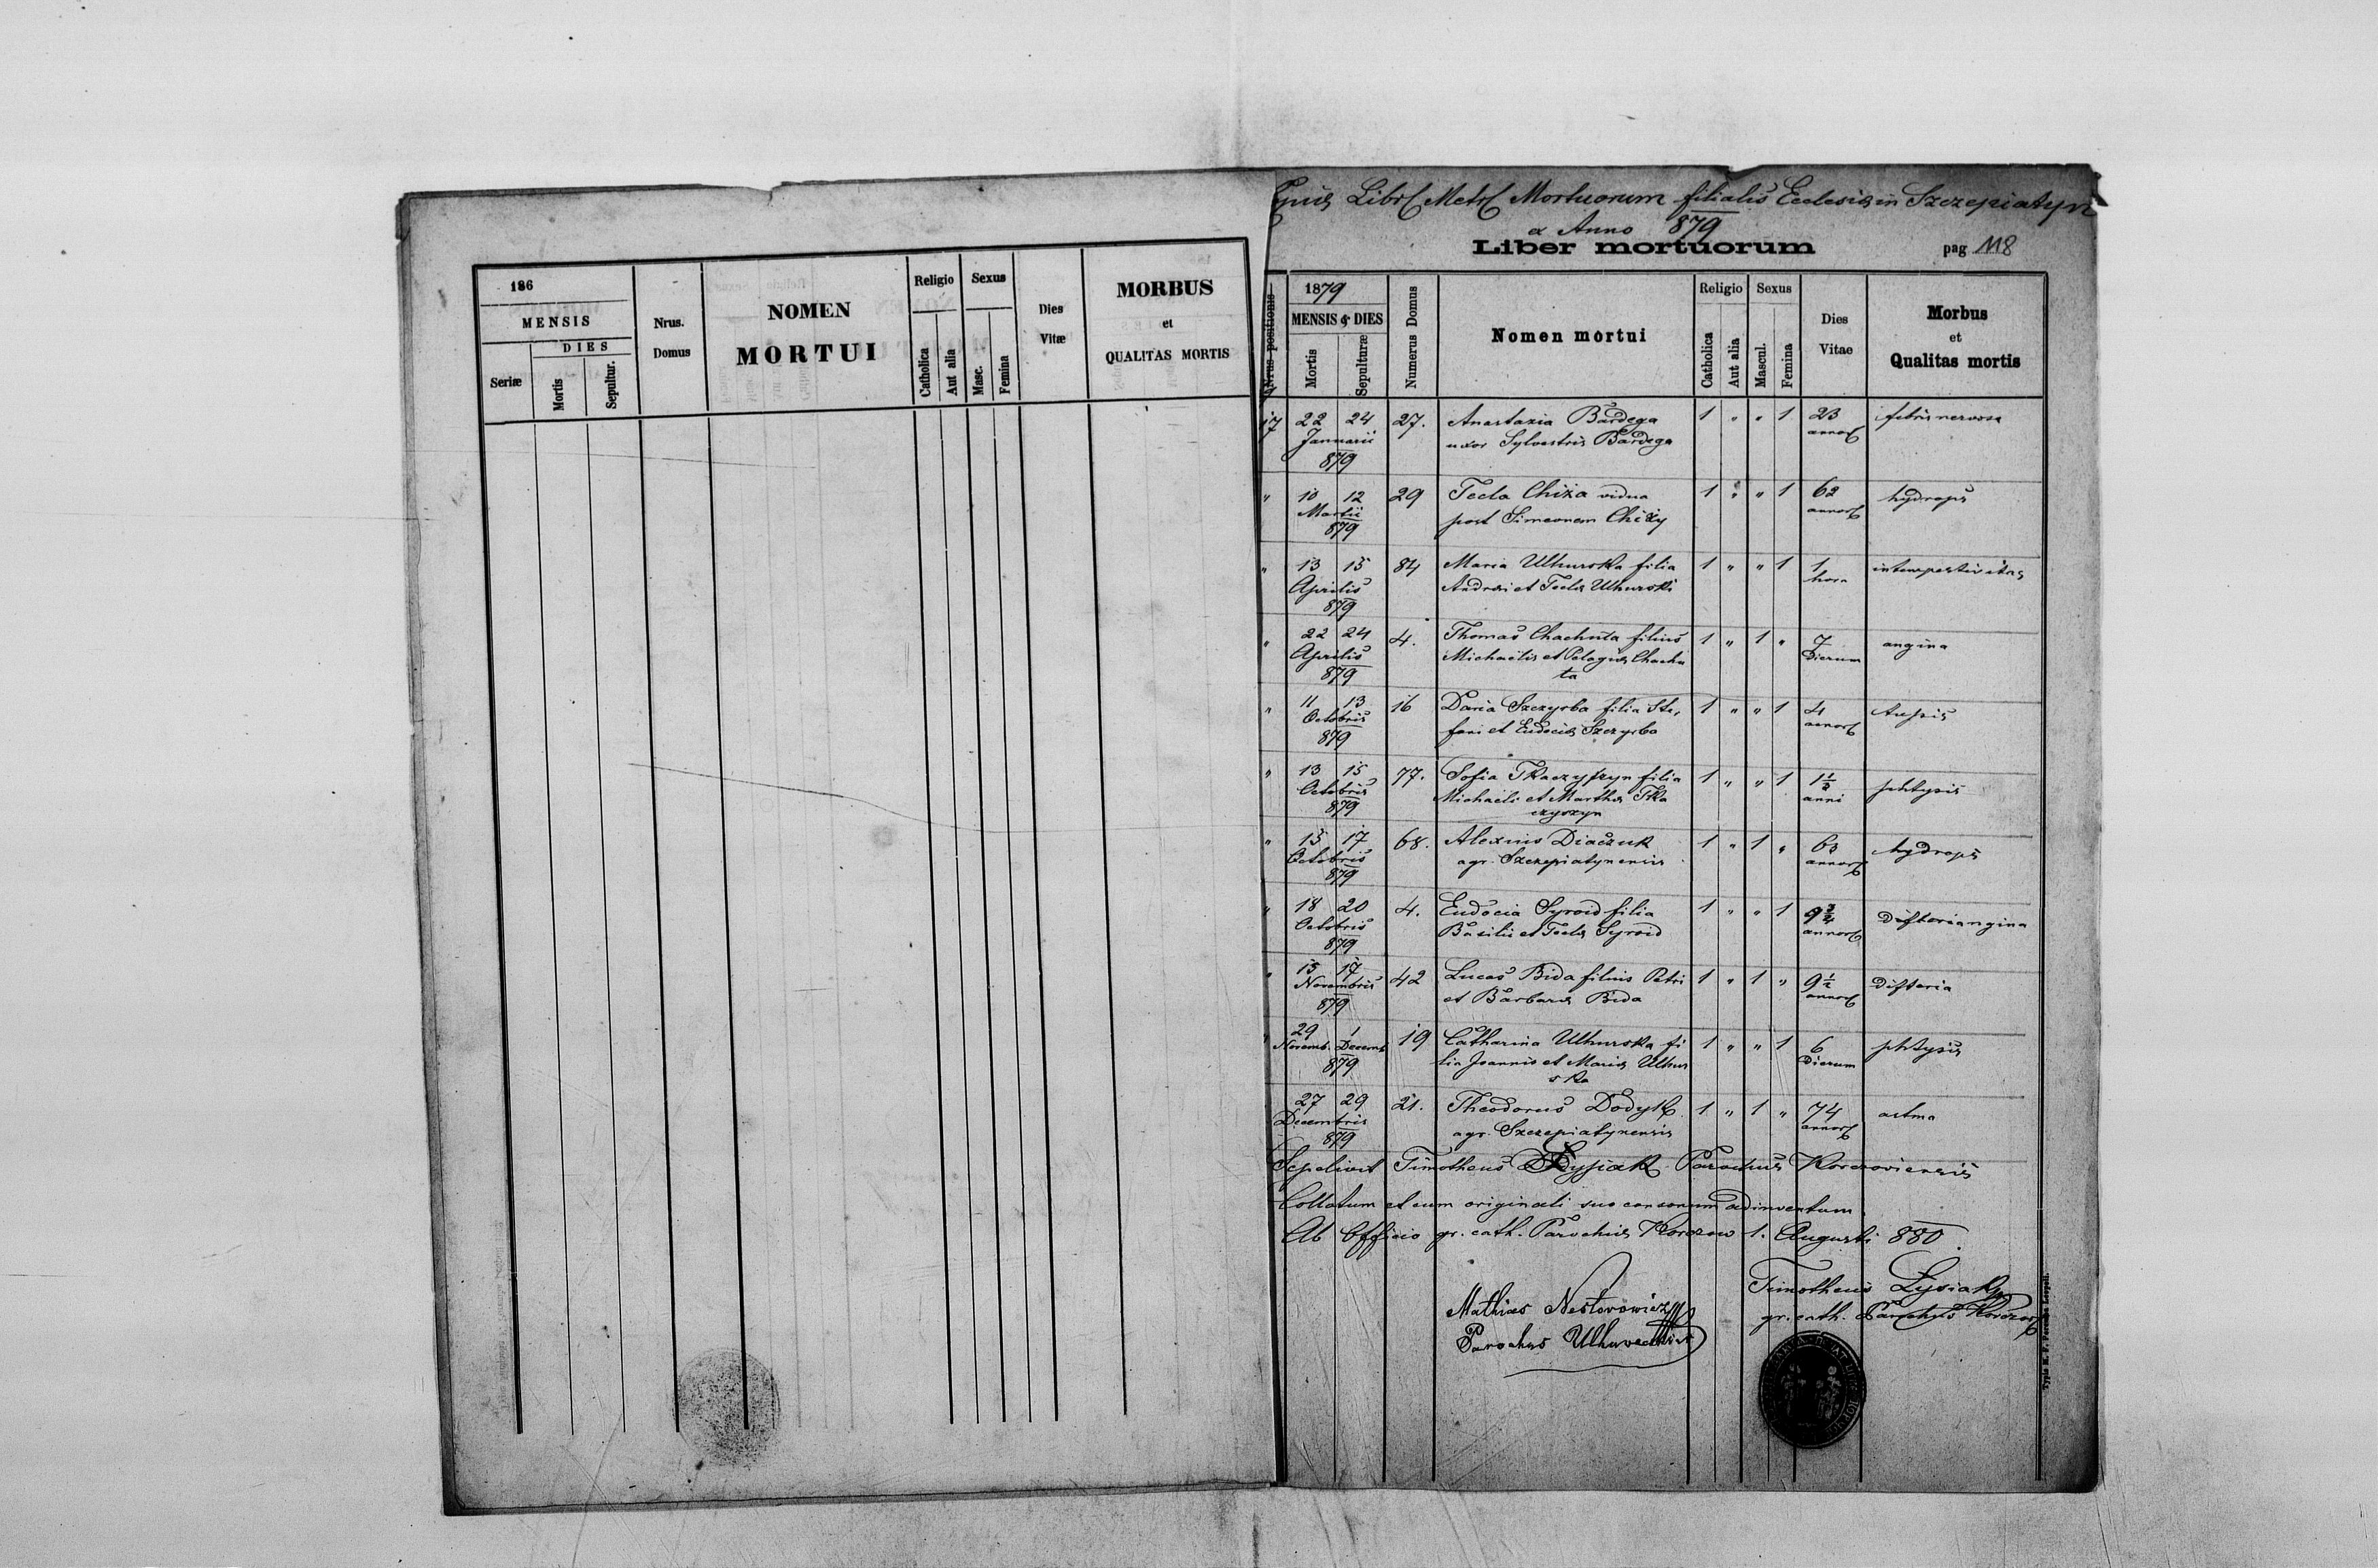 186
MENSIS
DIES
Seriæ
Mortis
Sepultur.
Nrus.
Domus
NOMEN
MORTUI
Religio
Catholica
Aut alia
Sexus
Masc.
Femina
Dies
Vitæ
MORBUS
et
QUALITAS MORTIS
Libri Metr Mortuorum filialis Ecclesiæ in Szczepiatyn
a Anno 879
Liber mortuorum
pag 118
Nrus positionis
1879
MENSIS & DIES
Mortis
Sepulturæ
Numerus Domus
Nomen mortui
Religio
Catholica
Aut alia
Sexus
Mascul.
Femina
Dies
Vitae
Morbus
et
Qualitas mortis
17 22 24 27. Anastazia Bardega 1 " " 1 23 febris nervosa
Januarii uxor Sylvestris Bardega annor
879
" 10 12 29 Tecla Chiża vidua 1 " " 1 62 hydrops
Martii post Simeonem Chiży annor
879
" 13 15 84 Maria Uhnurska filia 1 " " 1 1 intempestivitas
Aprilis Andrei et Teclæ Uhnurski hora
879
" 22 24 4. Thomas Chachuta filius 1 " 1 " 7 angina
Aprilis Michaelis et Pelagiæ Chachu dierum
879 ta
" 11 13 16 Daria Szczyrba filia Ste, 1 " " 1 4 tussis
Octobris fani et Eudociæ Szczyrba annor
879
" 13 15 77. Sofia Tkaczyszyn filia 1 " " 1 1½ phtysis
Octobris Michaeli et Marthæ Tka anni
879 czyszyn
" 15 17 68. Alexius Diaczuk 1 " 1 " 63 hydrops
Octobris agr. Szczepiatynensis annor
879
" 18 20 4. Eudocia Syroid filia 1 " " 1 9¾ difteriangina
Octobris Basilii et Teclæ Syroid annor
879
" 15 17 42 Lucas Bida filius Petri 1 " 1 " 9½ difteria
Novembris et Barbaræ Bida annor
879
" 29 1 19 Catharina Uhnurska fi 1 " " 1 6 phtysis
Novemb. Decemb. lia Joannis et Mariæ Uhnur dierum
879 ska
27 29 21. Theodorus Dodyk 1 " 1 " 74 astma
Decembris agr. Szczepiatynensis annor
879
Sepelivit Timotheus Łysiak Parochus Korczoviensis
Collatum et cum originali suo consonum adinventum
Ab Officio gr. cath. Parochiæ Korczow 1. Augusti 880.
Timotheus Łysiak
gr. cath. Parochus Korczow
Mathias Nestorowicz
Parochus